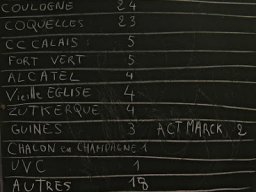 COULOGNE 24
COQUELLES 23
CC CALAIS : 5
FORT VERT 5
ALCATEL 4
Vieille EGLISE 4
ZUTKERQUE 4
GUINES 3 ACT MARCK 2
CHALON en CHAMPAGNE 1
UVC 1
AUTRES 18